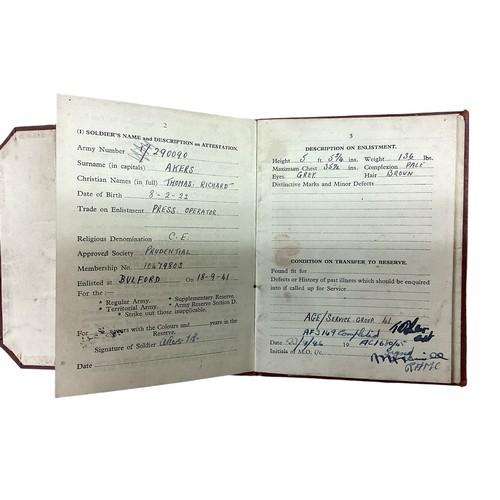 2
(I) SOLDIER'S NAME and DESCRIPTION on ATTESTATION.
Army Number 290090
Surname (in capitals) AKERS
Christian Names (in full) THOMAS RICHARD
Date of Birth 8-2-22
Trade on Enlistment PRESS OPERATOR
Religious Denomination C.E.
Approved Society PRUDENTIAL
Membership No. 10679803
Enlisted at BULFORD On 18-9-41
For the :—
* Regular Army. * Supplementary Reserve.
* Territorial Army. * Army Reserve Section D.
* Strike out those inapplicable.
For years with the Colours and years in the
Reserve.
Signature of Soldier Akers T.R.
Date
3
DESCRIPTION ON ENLISTMENT.
Height 5 ft 5¾ ins. Weight 136 lbs.
Maximum Chest 35½ ins. Complexion PALE
Eyes GREY Hair BROWN
Distinctive Marks and Minor Defects
CONDITION ON TRANSFER TO RESERVE.
Found fit for
Defects or History of past illness which should be enquired
into if called up for Service
AGE/SERVICE GROUP 41
AFS 149 Completed
Date /46
Initials of M.O. i/c.
RAMC